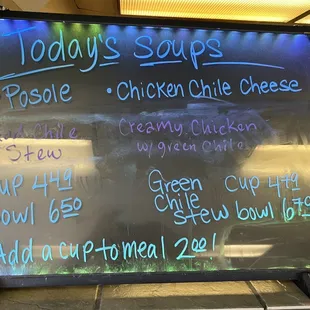 Today's Soups
Posole
• Chicken Chile Cheese
Chile
Stew
Creamy Chicken
w/ green Chile
Cup 4.49
Bowl 6.50
Green
Chile
Stew
Cup 4.79
bowl
Add a cup to meal 2.00!